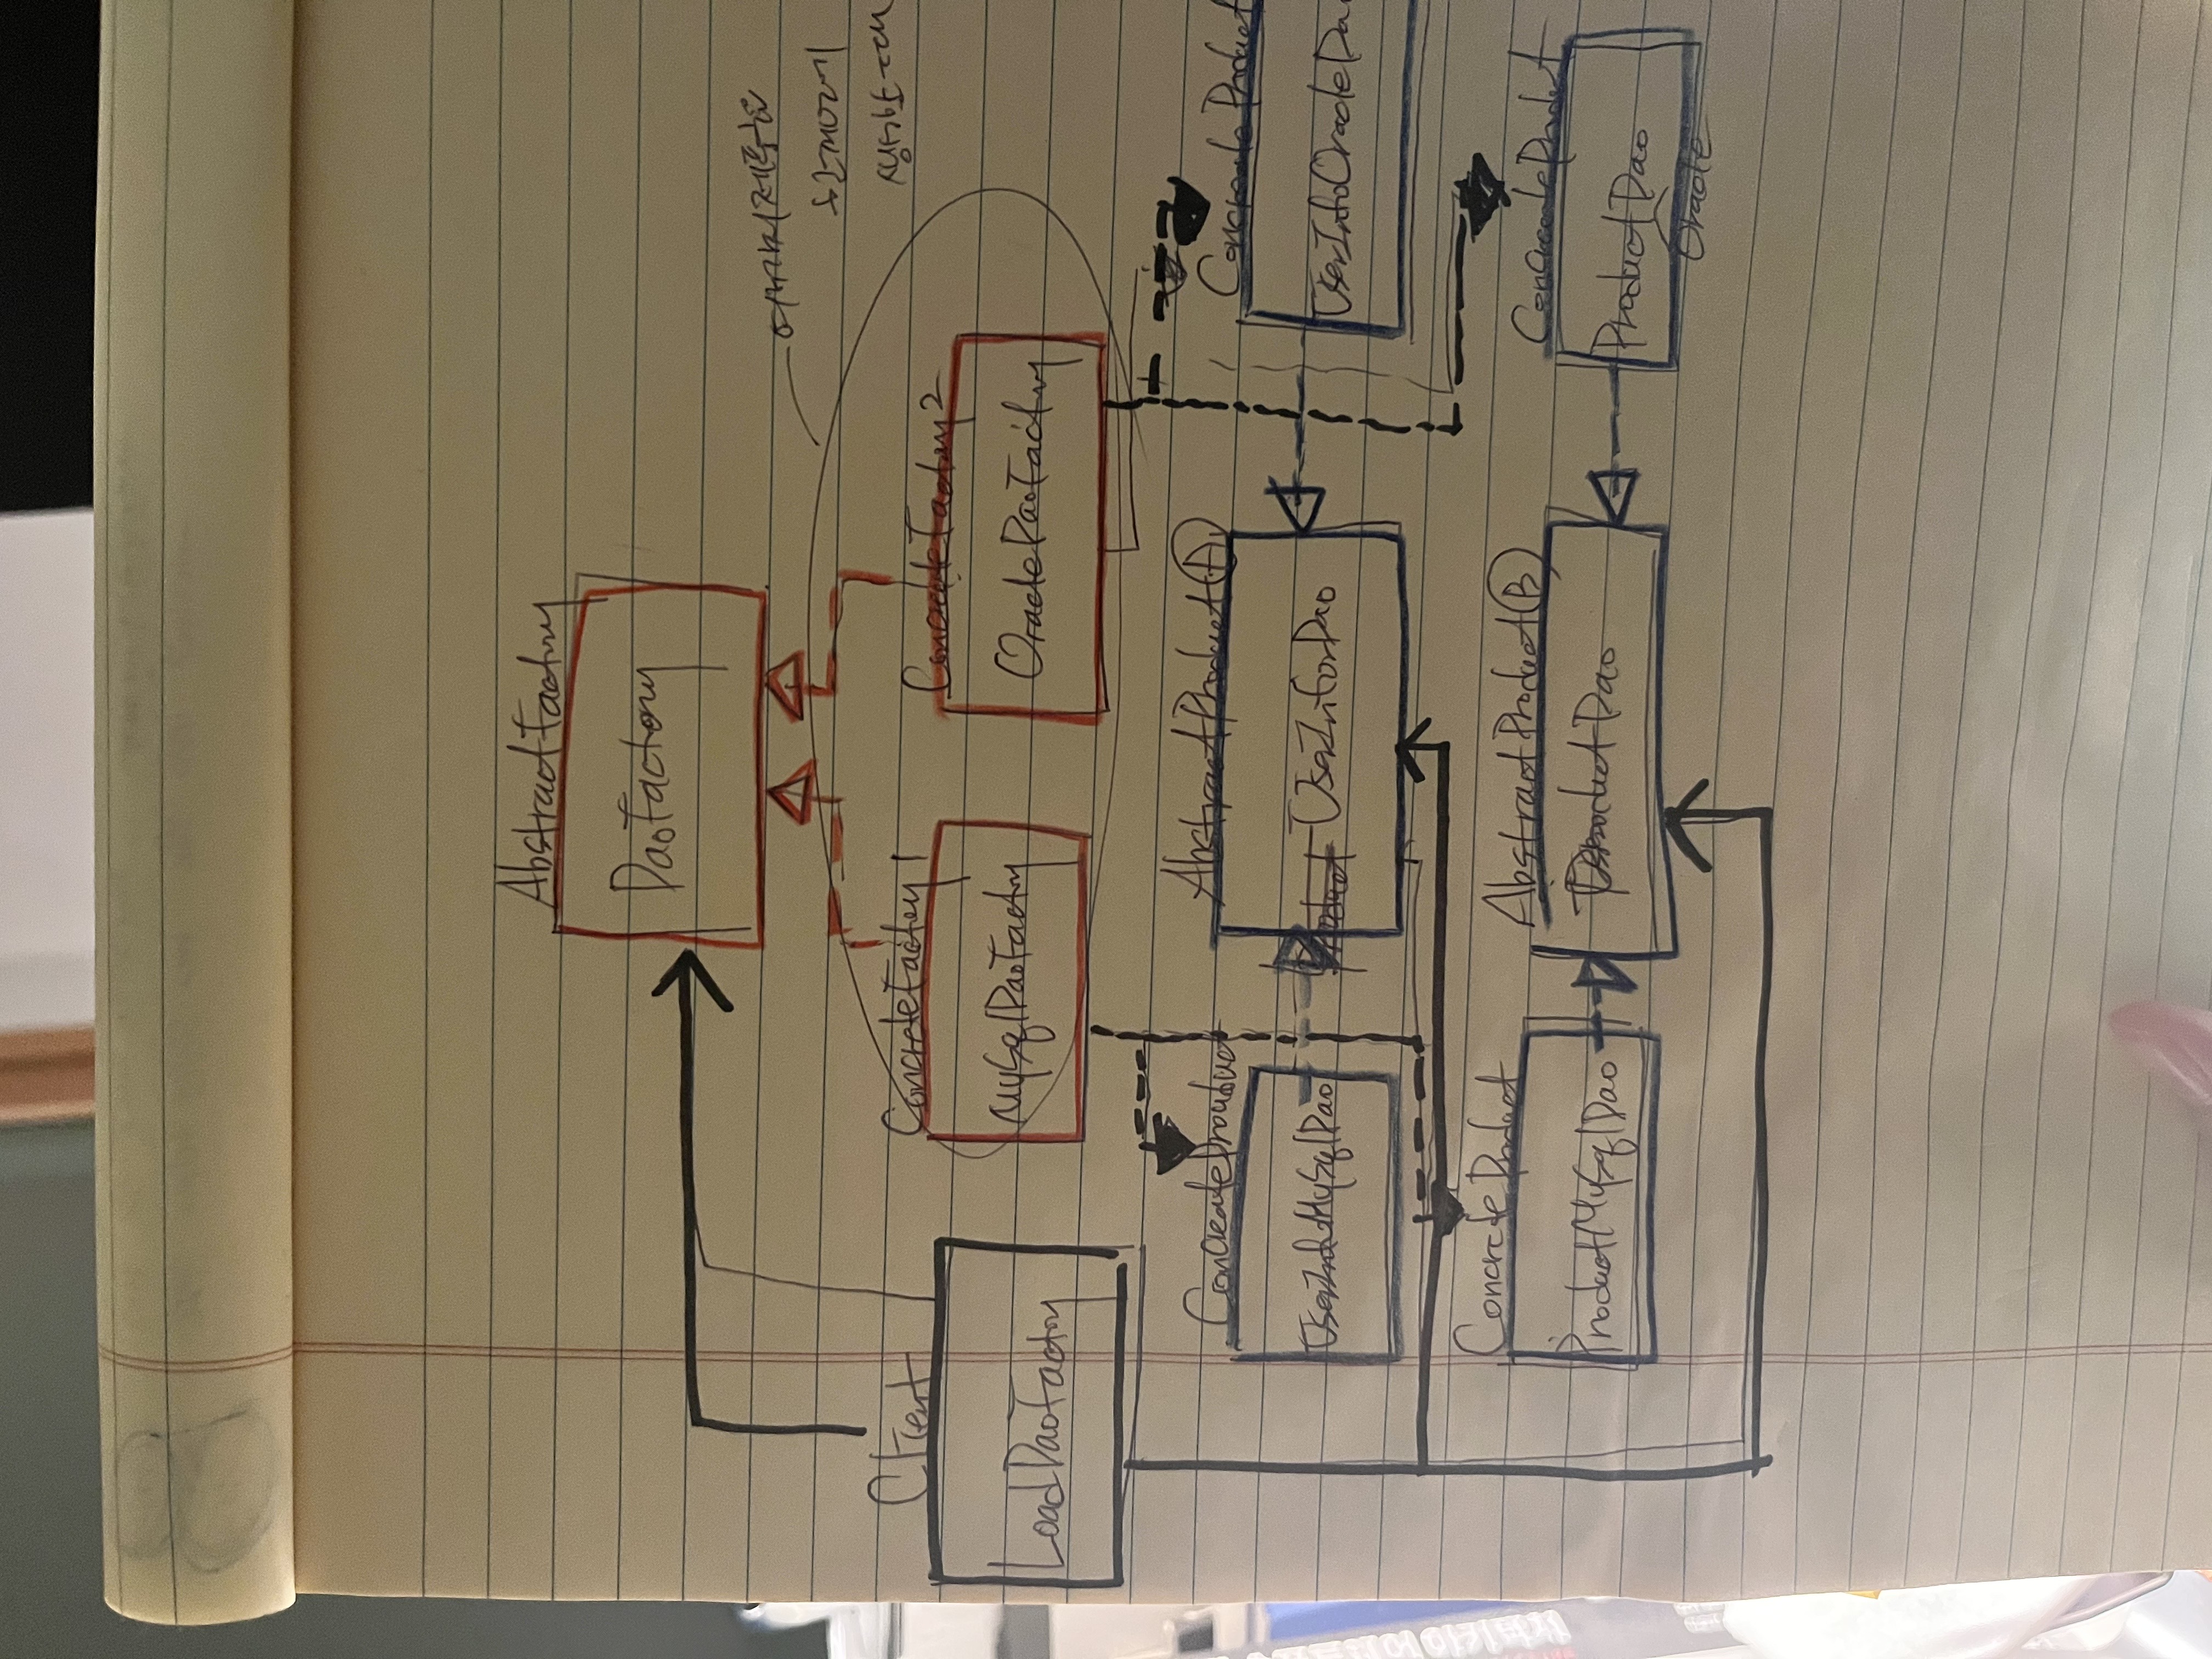 AbstractFactory
DaoFactory
여러가지 제품을
한꺼번에
생성하는데
Client
LoadDaoFactory
ConcreteFactory 1
MySqlDaoFactory
ConcreteFactory 2
OracleDaoFactory
ConcreateProuduct
UserInfoMySqlDao
AbstractProduct (A)
Product UserInforDao
Concreate Product
UserInfoOracleDao
Concrete Product
ProductMySqlDao
AbstractProduct (B)
ProductDao
Concreate Product
ProductDao
Oracle